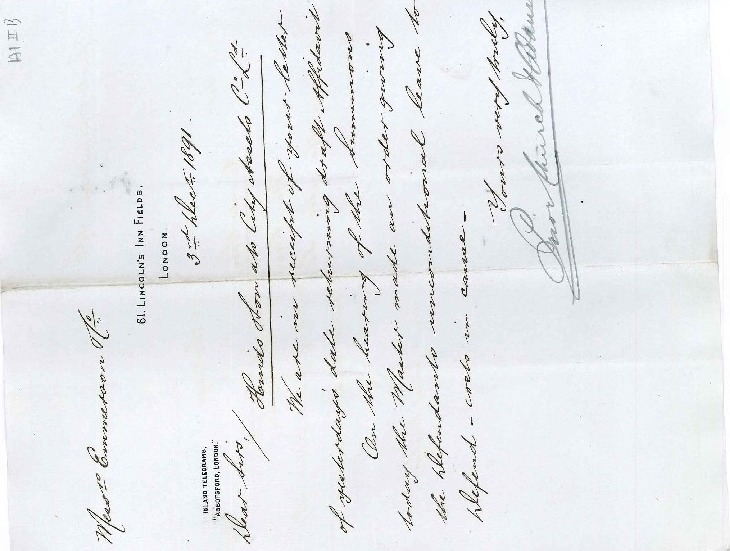 A1 II B
61, LINCOLN'S INN FIELDS,
LONDON
3rd Decr. 1891.
INLAND TELEGRAMS,
"ABBOTSFORD, LONDON."
Messrs Emmerson & Co
Dear Sirs,
ats City Assets Co Ld
We are in receipt of your letter
of yesterday's date returning draft Affidavit
On the hearing of the Summons
today the Master made an order giving
the Defendants unconditional leave to
defend - costs in cause -
Yours very truly,
Snor Church